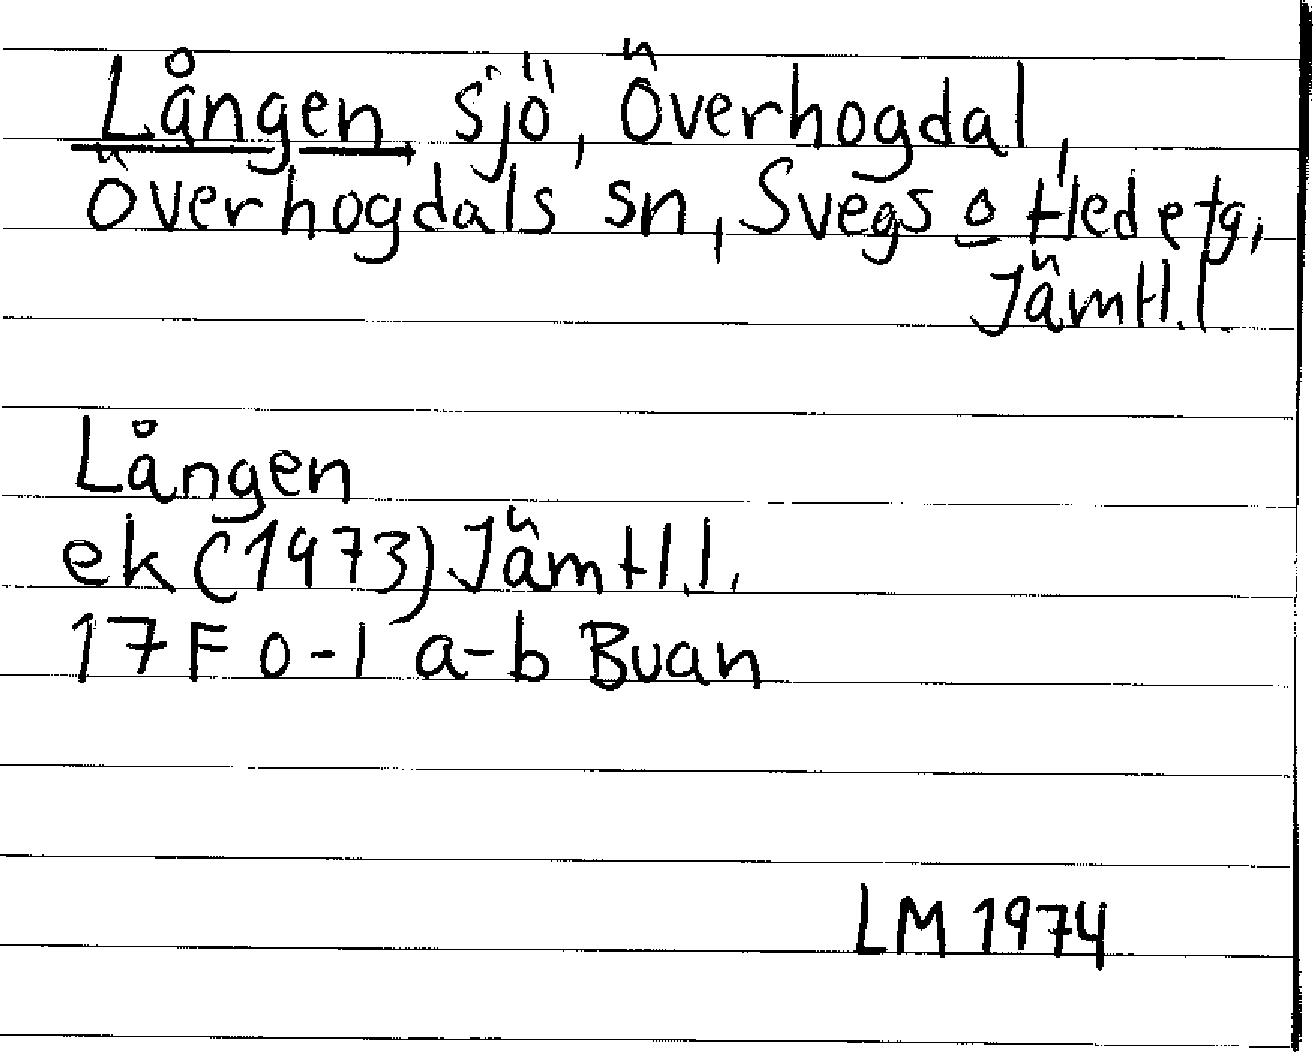 Lången sjö, Överhogdal,
Överhogdals sn, Svegs o Hede tg,
Jämtl. l.
Lången
ek (1973) Jämtl. l.
17 F 0-1 a-b Buan
LM 1974